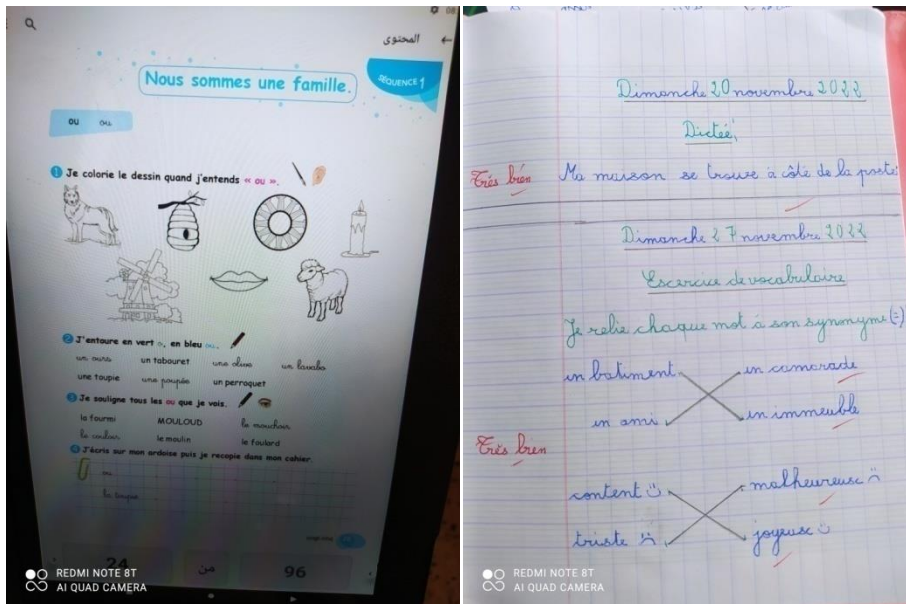 المحتوى
Nous sommes une famille.
SÉQUENCE 1
ou ou
1 Je colorie le dessin quand j'entends « ou ».
2 J'entoure en vert o, en bleu ou.
un ours un tabouret une olive un lavabo
une toupie une poupée un perroquet
3 Je souligne tous les ou que je vois.
la fourmi MOULOUD le mouchoir
le couloir le moulin le foulard
4 J'écris sur mon ardoise puis je recopie dans mon cahier.
ou
la toupie
24 من 96
REDMI NOTE 8T
AI QUAD CAMERA
Dimanche 20 novembre 2022
Dictée
Très bien
Ma maison se trouve à côté de la poste
Dimanche 27 novembre 2022
Exercice de vocabulaire
Je relie chaque mot à son synonyme (=)
un batiment un camarade
un ami un immeuble
Très bien
content malheureuse
triste joyeuse
REDMI NOTE 8T
AI QUAD CAMERA